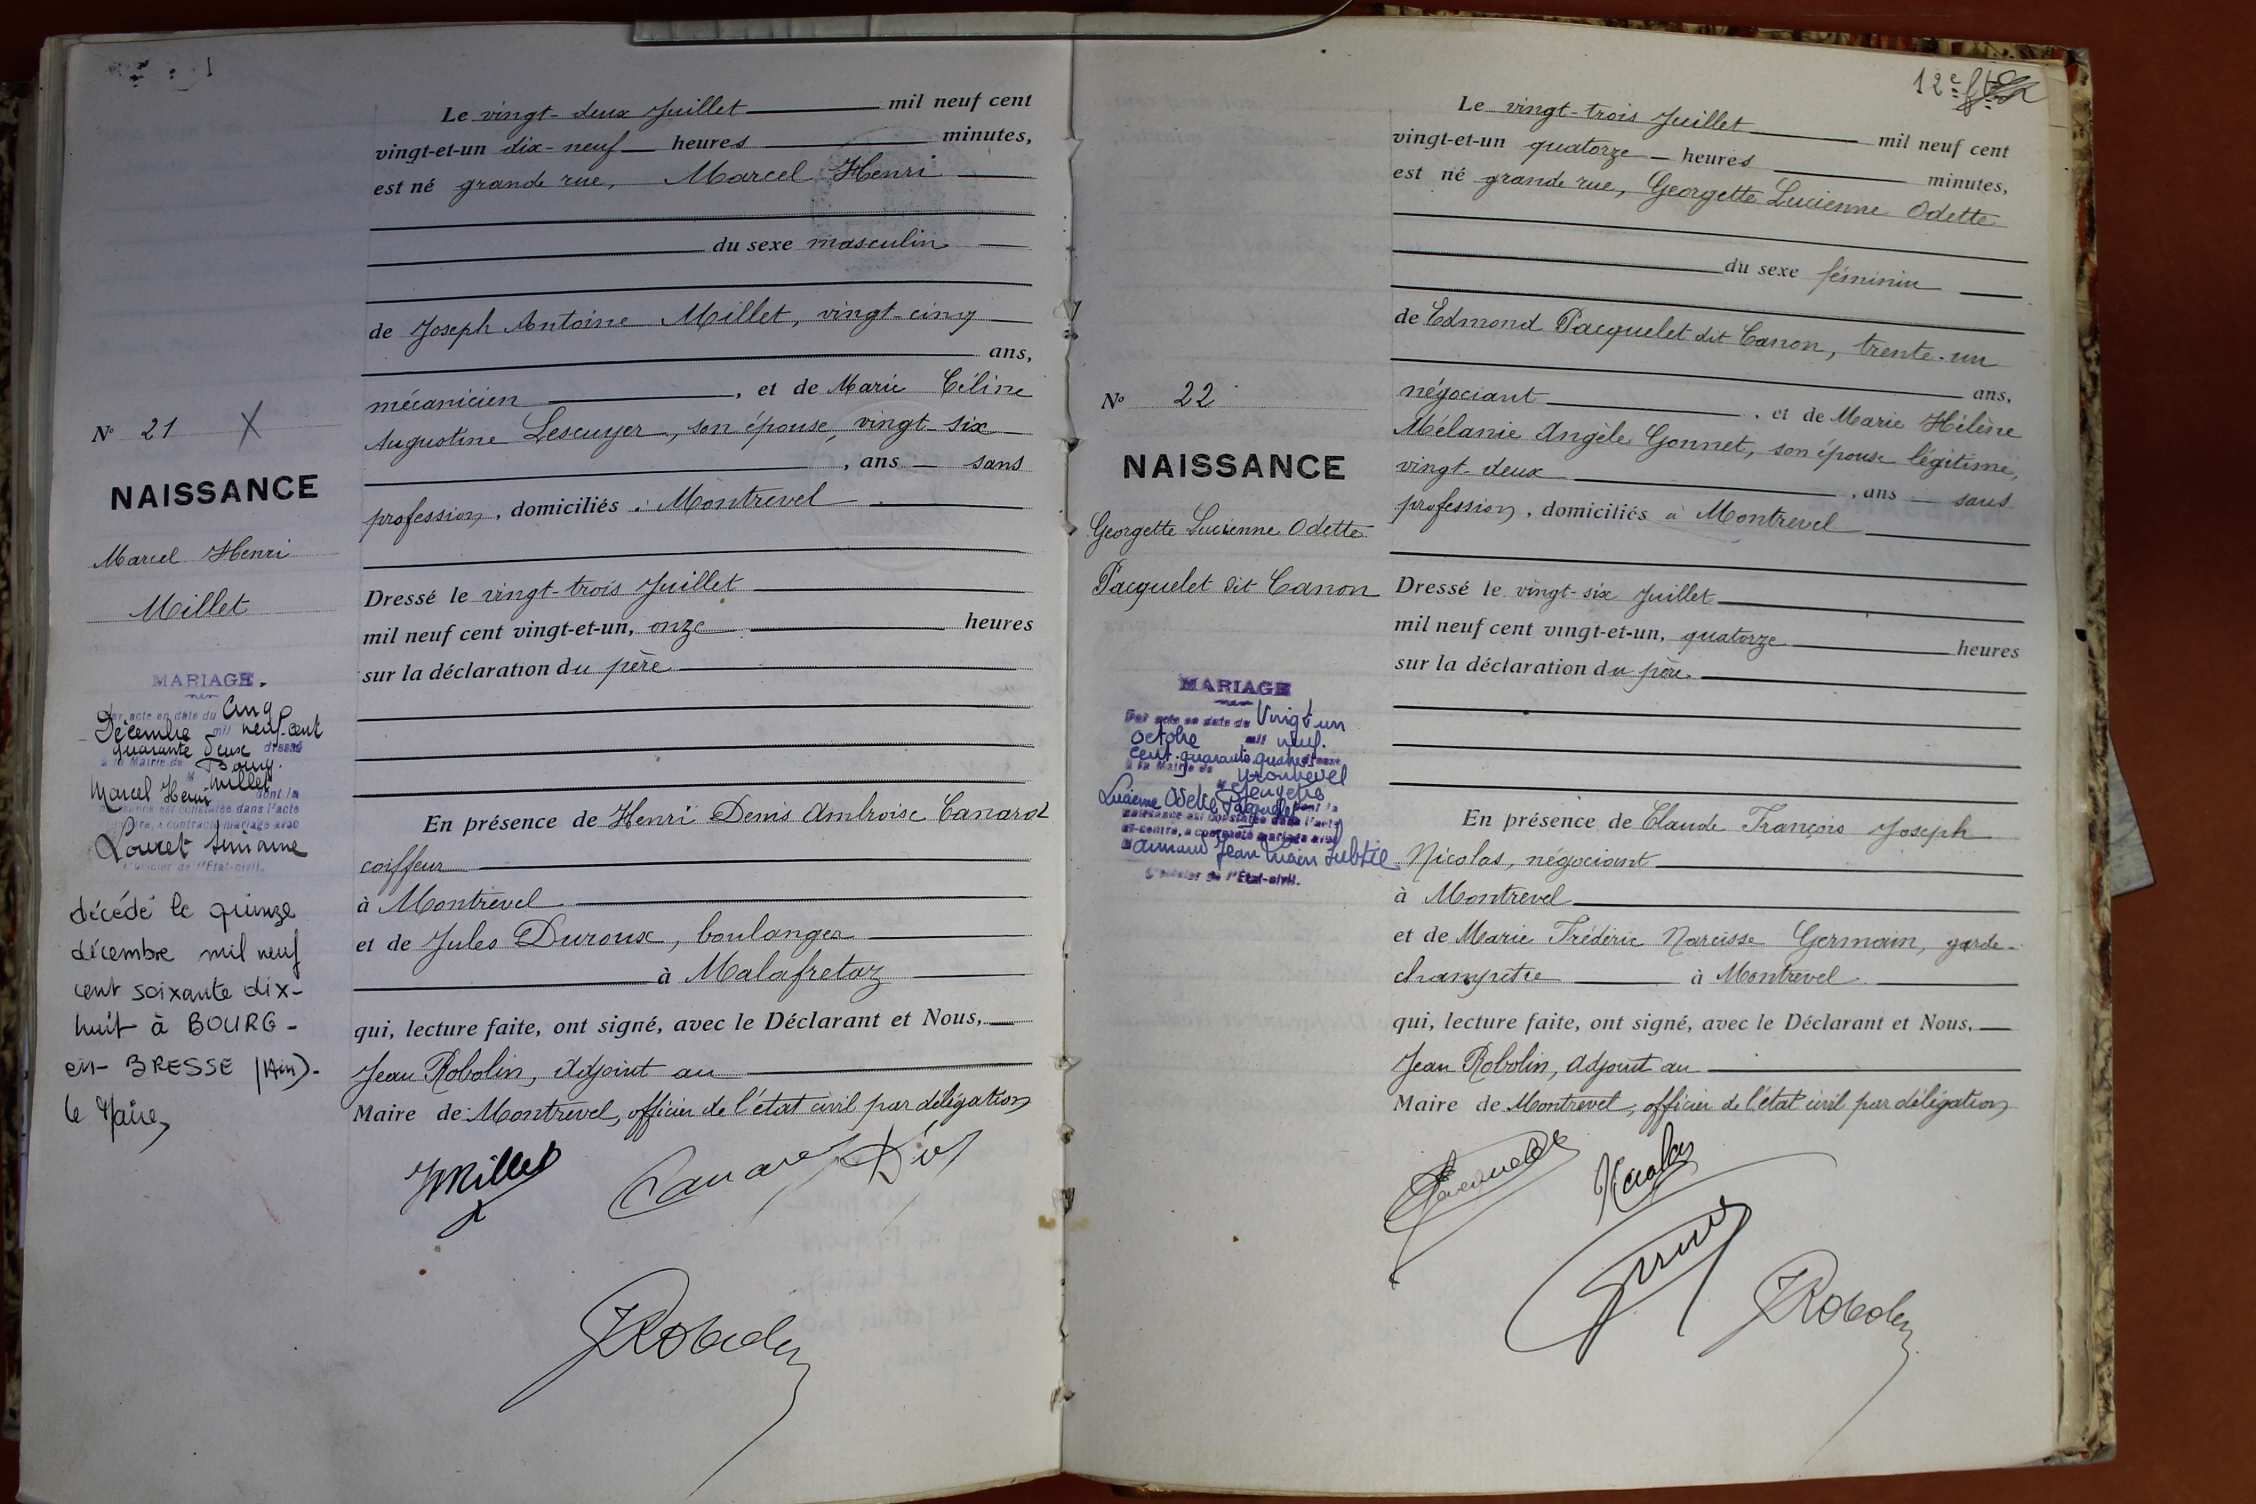 Le vingt-deux Juillet mil neuf cent
vingt-et-un dix-neuf heures minutes,
est né grande rue, Marcel Henri
du sexe masculin
de Joseph Antoine Millet, vingt-cinq
ans,
mécanicien, et de Marie Céline
Augustine Lescuyer, son épouse, vingt-six
, ans sans
profession, domiciliés à Montrevel
Dressé le vingt-trois Juillet
mil neuf cent vingt-et-un, onze heures
sur la déclaration du père
En présence de Henri Denis Ambroise Canard
coiffeur
à Montrevel
et de Jules Duroux, boulanger
à Malafretaz
qui, lecture faite, ont signé, avec le Déclarant et Nous,
Jean Robolin, Adjoint au
Maire de Montrevel, officier de l'état civil par délégation
JMillet
Canard
JRobolin
No 21 X
NAISSANCE
Marcel Henri
Millet
MARIAGE.
Par acte en date du Cinq
Décembre mil neuf cent
quarante deux dressé
à la Mairie de Bourg.
Marcel Henri Millet dont la
naissance est constatée dans l'acte
a contracté mariage avec
Louret Simone
l'Officier de l'Etat-civil.
décédé le quinze
décembre mil neuf
cent soixante dix-
huit à BOURG-
en-BRESSE (Ain).
le Maire,
12e
Le vingt-trois Juillet mil neuf cent
vingt-et-un quatorze heures minutes,
est né grande rue, Georgette Lucienne Odette
du sexe féminin
de Edmond Pacquelet dit Canon, trente-un
ans,
négociant, et de Marie Hélène
Mélanie Angèle Gonnet, son épouse légitime,
vingt-deux, ans sans
profession, domiciliés à Montrevel
Dressé le vingt-six Juillet
mil neuf cent vingt-et-un, quatorze heures
sur la déclaration du père.
En présence de Claude François Joseph
Nicolas, négociant
à Montrevel
et de Marie Frédéric Narcisse Germain, garde-
champêtre à Montrevel
qui, lecture faite, ont signé, avec le Déclarant et Nous,
Jean Robolin, Adjoint au
Maire de Montrevel, officier de l'état civil par délégation
Nicolas
JRobolin
No 22
NAISSANCE
Georgette Lucienne Odette
Pacquelet dit Canon
MARIAGE
Par acte en date du Vingt un
octobre mil neuf.
cent quarante quatre dressé
à la Mairie de Montrevel
Georgette
Lucienne Odette Pacquelet dont la
naissance est constatée dans l'acte
ci-contre, a contracté mariage avec
Armand Jean Lucien Subtil
L'Officier de l'Etat-civil.